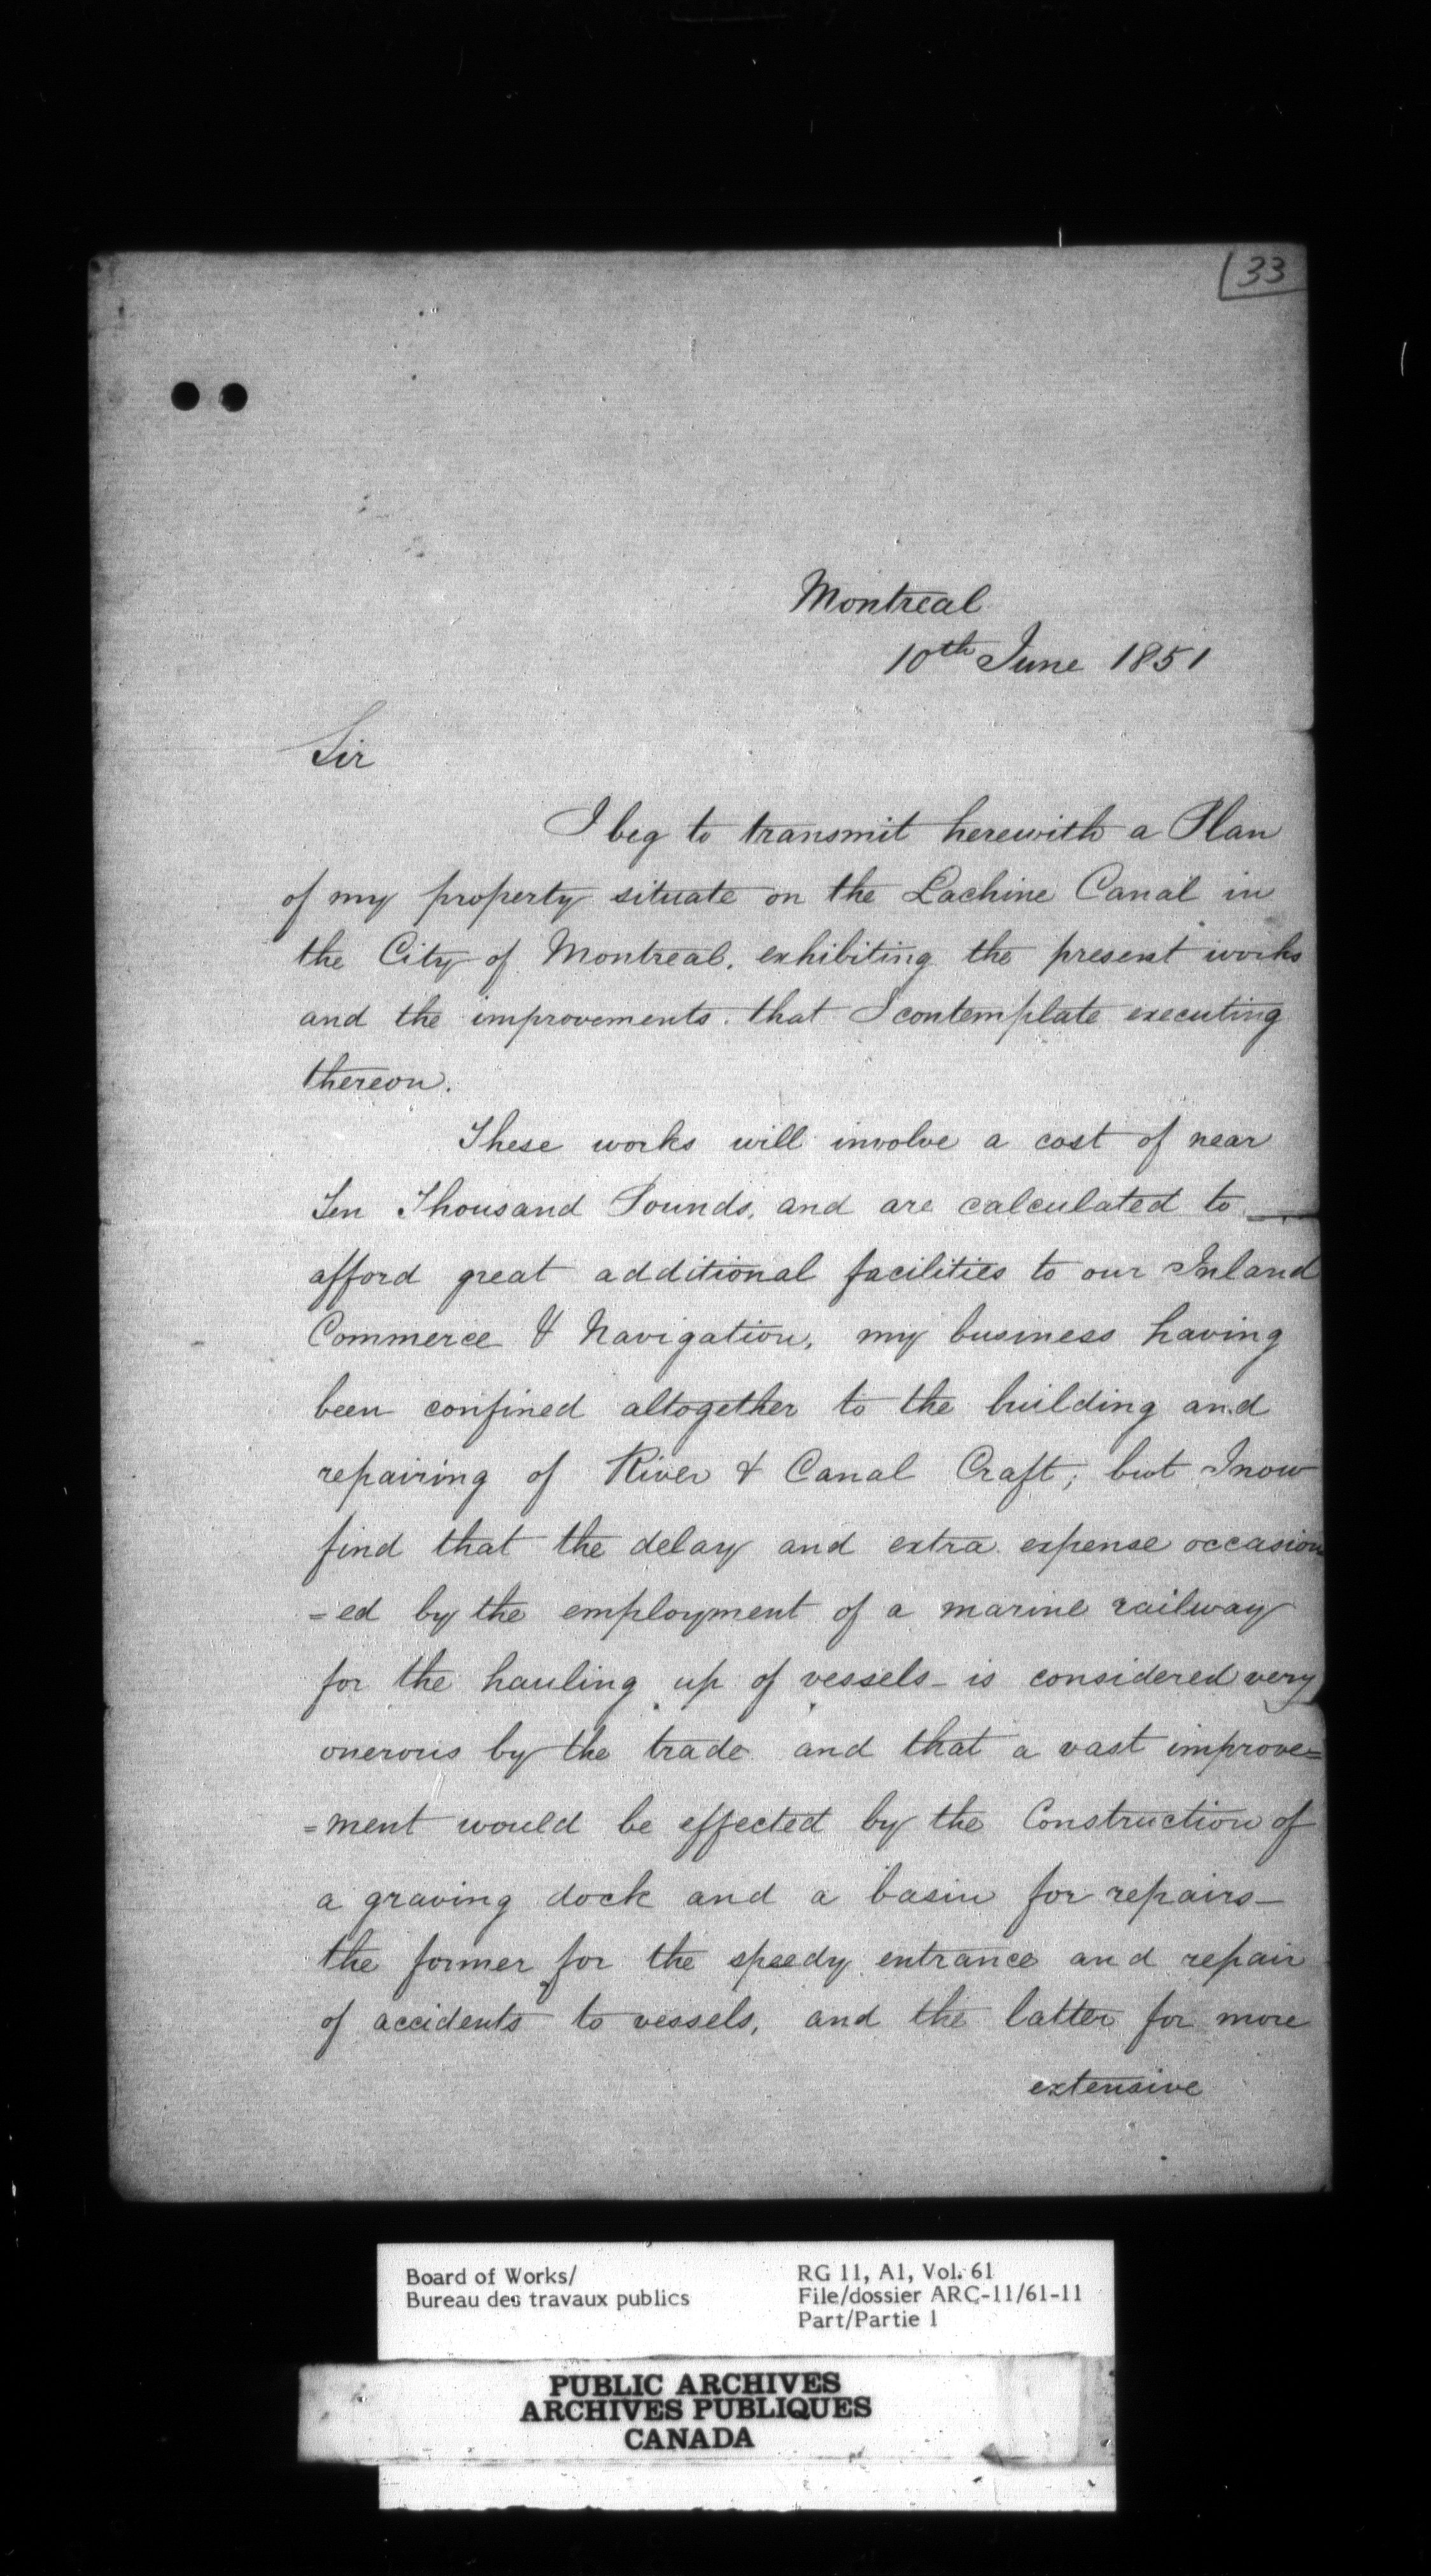 33
Montreal
10th June 1851
Sir
I beg to transmit herewith a Plan
of my property situate on the Lachine Canal in
the City of Montreal. exhibiting the present works
and the improvements. that I contemplate executing
thereon.
These works will involve a cost of near
Ten Thousand Pounds, and are calculated to
afford great additional facilities to our Inland
Commerce & Navigation, my business having
been confined altogether to the building and
repairing of River & Canal Craft; but I now
find that the delay and extra expense occasion
=ed by the employment of a marine railway
for the hauling up of vessels - is considered very
onerous by the trade and that a vast improve=
=ment would be effected by the Construction of
a graving dock and a basin for repairs -
the former for the speedy entrance and repair
of accidents to vessels, and the latter for more
extensive
Board of Works/
Bureau des travaux publics
RG 11, A1, Vol. 61
File/dossier ARC-11/61-11
Part/Partie 1
PUBLIC ARCHIVES
ARCHIVES PUBLIQUES
CANADA